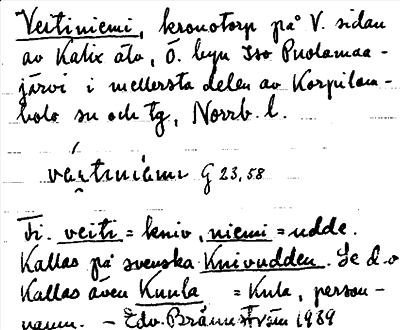 Veitiniemi, kronotorp på V. sidan
av Kalix älv, Ö. byn Iso Puolamaa-
järvi i mellersta delen av Korpilom-
bolo sn och tg, Norrb. l.
G 23,58
Fi. veiti = kniv, niemi = udde.
Kallas på svenska Knivudden. Se d.o
Kallas även Kuula = Kula, person-
namn. – Edv. Brännström 1939